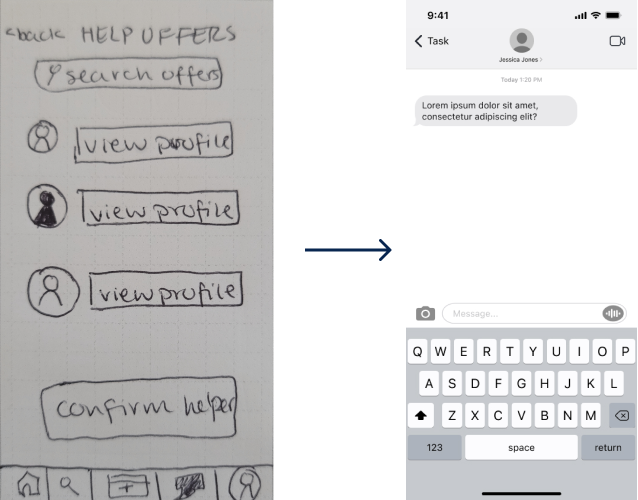 <back HELP OFFERS
search offers
view profile
view profile
view profile
confirm helper
9:41
Task
Jessica Jones
Today 1:20 PM
Lorem ipsum dolor sit amet,
consectetur adipiscing elit?
Message...
Q W E R T Y U I O P
A S D F G H J K L
Z X C V B N M
123 space return